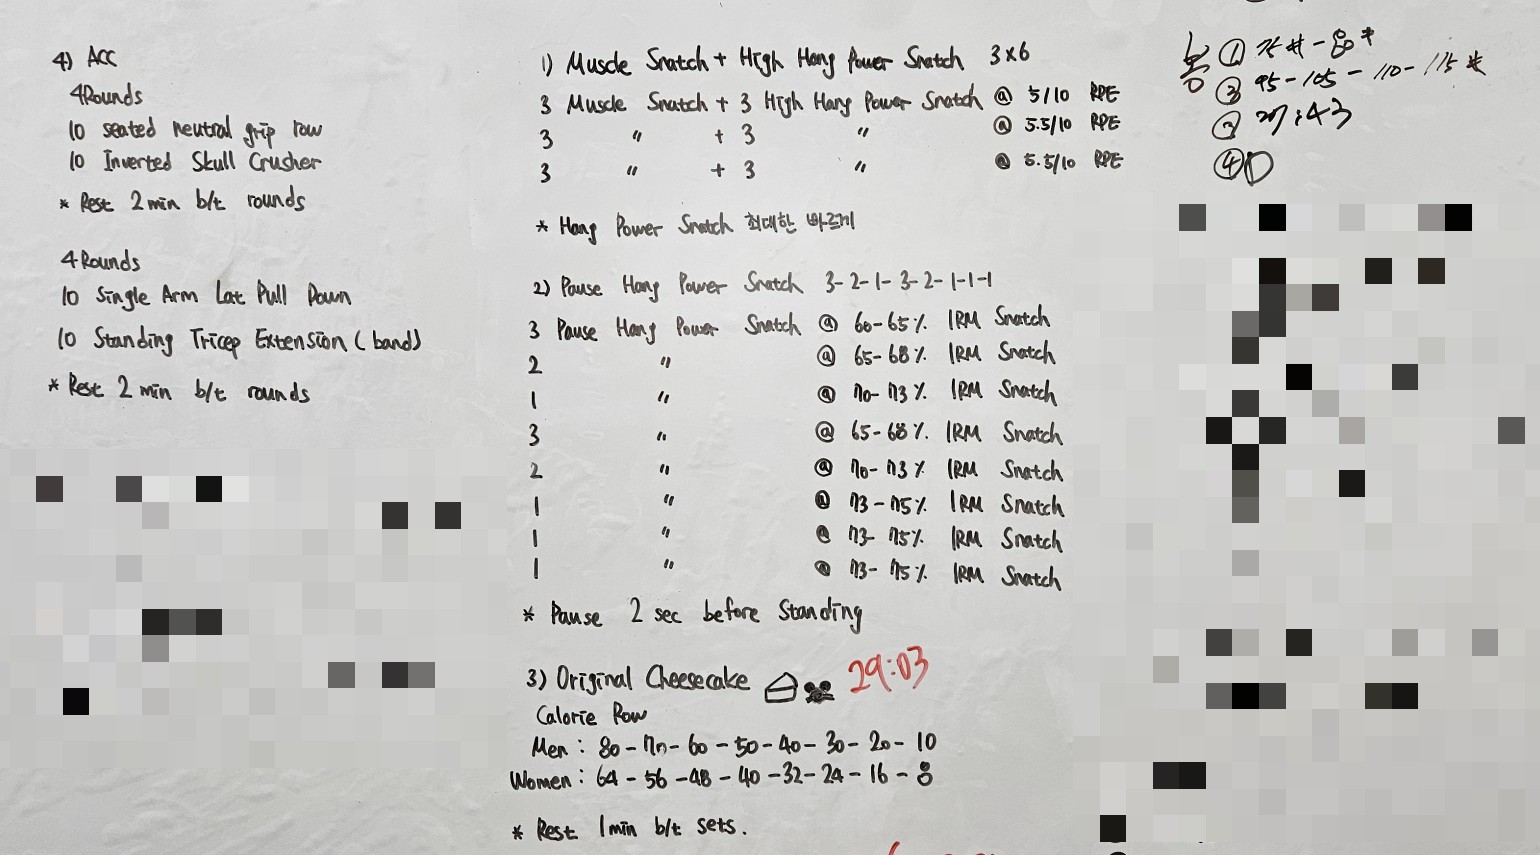 4) ACC
4Rounds
10 seated neutral grip row
10 Inverted Skull Crusher
* Rest 2min b/t rounds
4Rounds
10 Single Arm Lat Pull Down
10 Standing Tricep Extension (band)
* Rest 2 min b/t rounds
1) Muscle Snatch + High Hang Power Snatch 3x6
3 Muscle Snatch + 3 High Hang Power Snatch @ 5/10 RPE
3 〃 + 3 〃 @ 5.5/10 RPE
3 〃 + 3 〃 @ 5.5/10 RPE
* Hang Power Snatch 최대한 빠르게
2) Pause Hang Power Snatch 3-2-1-3-2-1-1-1
3 Pause Hang Power Snatch @ 60-65% 1RM Snatch
2 〃 @ 65-68% 1RM Snatch
1 〃 @ 70-73% 1RM Snatch
3 〃 @ 65-68% 1RM Snatch
2 〃 @ 70-73% 1RM Snatch
1 〃 @ 73-75% 1RM Snatch
1 〃 @ 73-75% 1RM Snatch
1 〃 @ 73-75% 1RM Snatch
* Pause 2 sec before Standing
3) Original Cheesecake 29:03
Calorie Row
Men : 80-70-60-50-40-30-20-10
Women : 64-56-48-40-32-24-16-8
* Rest 1min b/t sets.
① 75#-80#
② 95-105-110-115#
③ 27:43
④